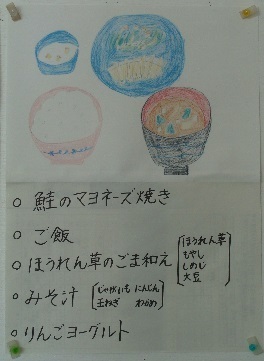 ○ 鮭のマヨネーズ焼き
○ ご飯
○ ほうれん草のごま和え
ほうれん草
もやし
しめじ
大豆
○ みそ汁
じゃがいも にんじん
玉ねぎ わかめ
○ りんごヨーグルト